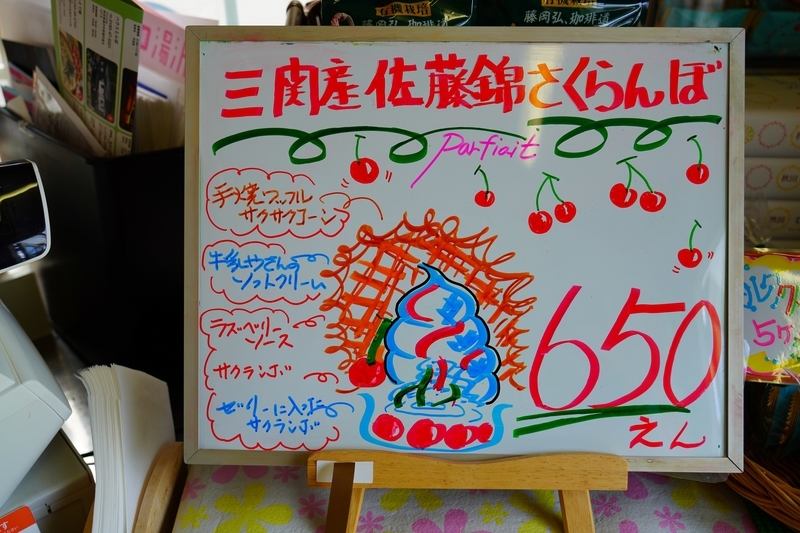 有機栽培
有機栽培
藤岡弘、珈琲道
藤岡弘、珈琲道
三関産佐藤錦さくらんぼ
Parfiait
手焼ワッフル
サクサクコーン
牛乳やさんの
ソフトクリーム
ラズベリー
ソース
サクランボ
ゼリーに入った
サクランボ
650
えん